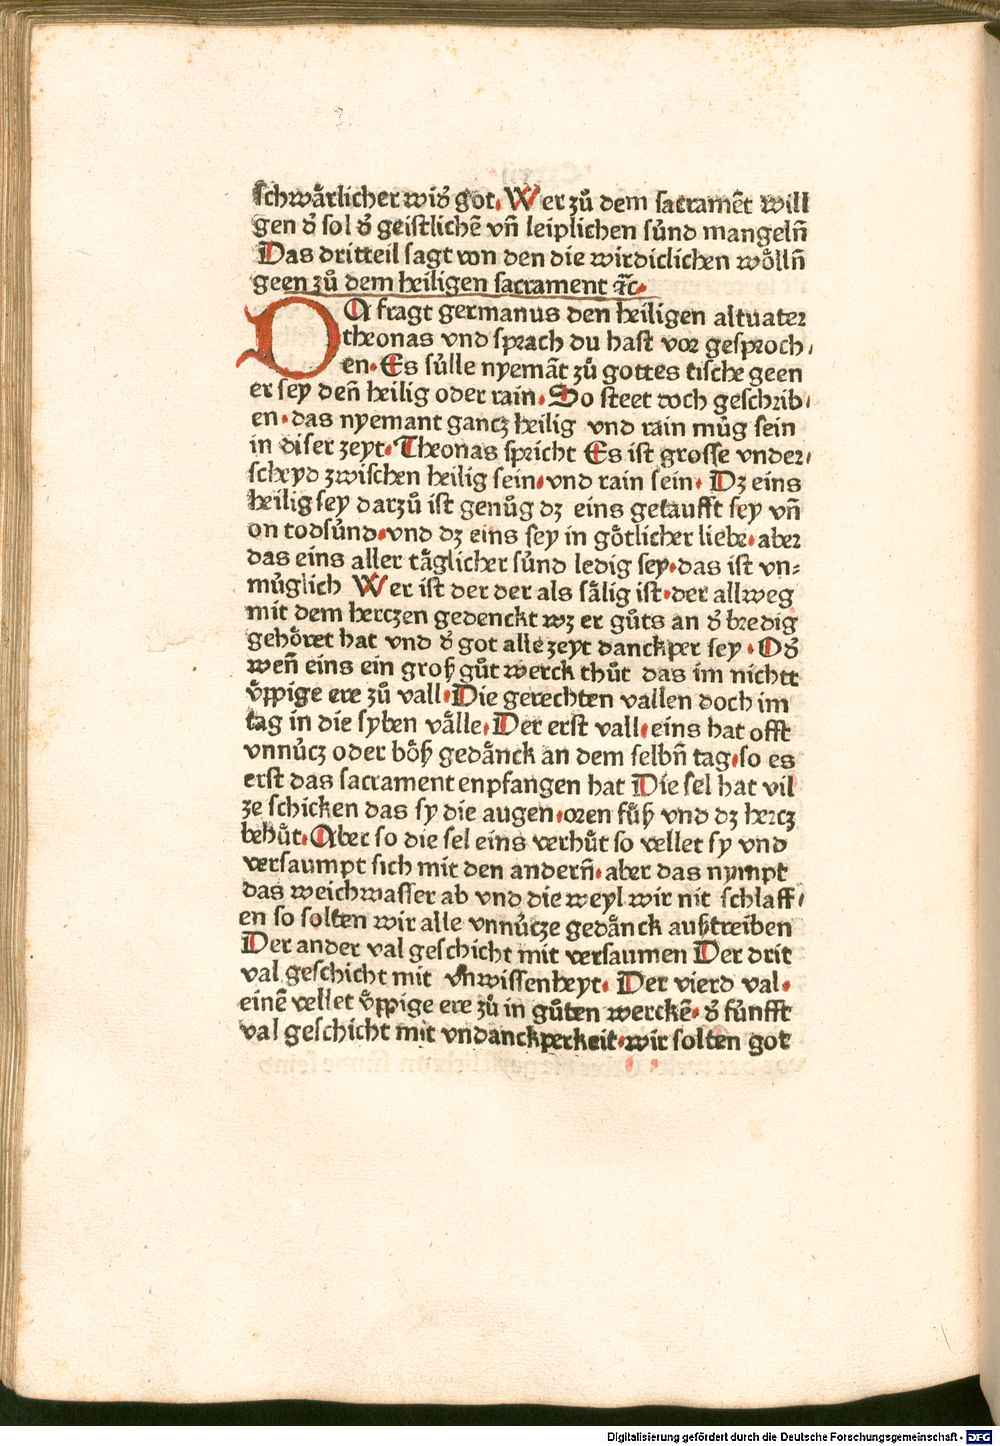 schwaͤrlicher wid̕ got. Wer zuͦ dem sacramēt will
gen d̕ sol d̕ geistlichē vn̄ leiplichen súnd mangeln̄
Das dritteil sagt von den die wirdiclichen woͤlln̄
geen zuͦ dem heiligen sacrament ꝛc̄.
DA fragt germanus den heiligen altuater
theonas vnd sprach du hast vor gesproch⸗
en. Es súlle nyemāt zuͦ gottes tische geen
er sey den̄ heilig oder rain. So steet doch geschrib⸗
en. das nyemant gancz heilig vnd rain múg sein
in diser zeyt. Theonas spricht Es ist grosse vnder⸗
scheyd zwischen heilig sein. vnd rain sein. Dz eins
heilig sey darzuͦ ist genuͦg dz eins getaufft sey vn̄
on todsúnd. vnd dz eins sey in goͤtlicher liebe. aber
das eins aller taͤglicher súnd ledig sey. das ist vn⸗
múglich Wer ist der der als saͤlig ist. der allweg
mit dem herczen gedenckt wz er guͦts an d̕ bredig
gehoͤret hat vnd d̕ got alle zeyt danckper sey. Od̕
wen̄ eins ein groß guͦt werck thuͦt das im nichtt
v́ppige ere zuͦ vall. Die gerechten vallen doch im
tag in die syben vaͤlle. Der erst vall. eins hat offt
vnnúcz oder boͤß gedaͤnck an dem selbn̄ tag. so es
erst das sacrament enpfangen hat Die sel hat vil
ze schicken das sy die augen. oren fuͤß vnd dz hercz
behuͤt. Aber so die sel eins verhuͤt so vellet sy vnd
versaumpt sich mit den andern̄. aber das nympt
das weichwasser ab vnd die weyl wir nit schlaff⸗
en so solten wir alle vnnúcze gedaͤnck außtreiben
Der ander val geschicht mit versaumen Der drit
val geschicht mit vnwissenheyt. Der vierd val.
einē vellet v́ppige ere zuͦ in guͦten werckē. d̕ fúnfft
val geschicht mit vndanckperkeit. wir solten got
Digitalisierung gefördert durch die Deutsche Forschungsgemeinschaft - DFG